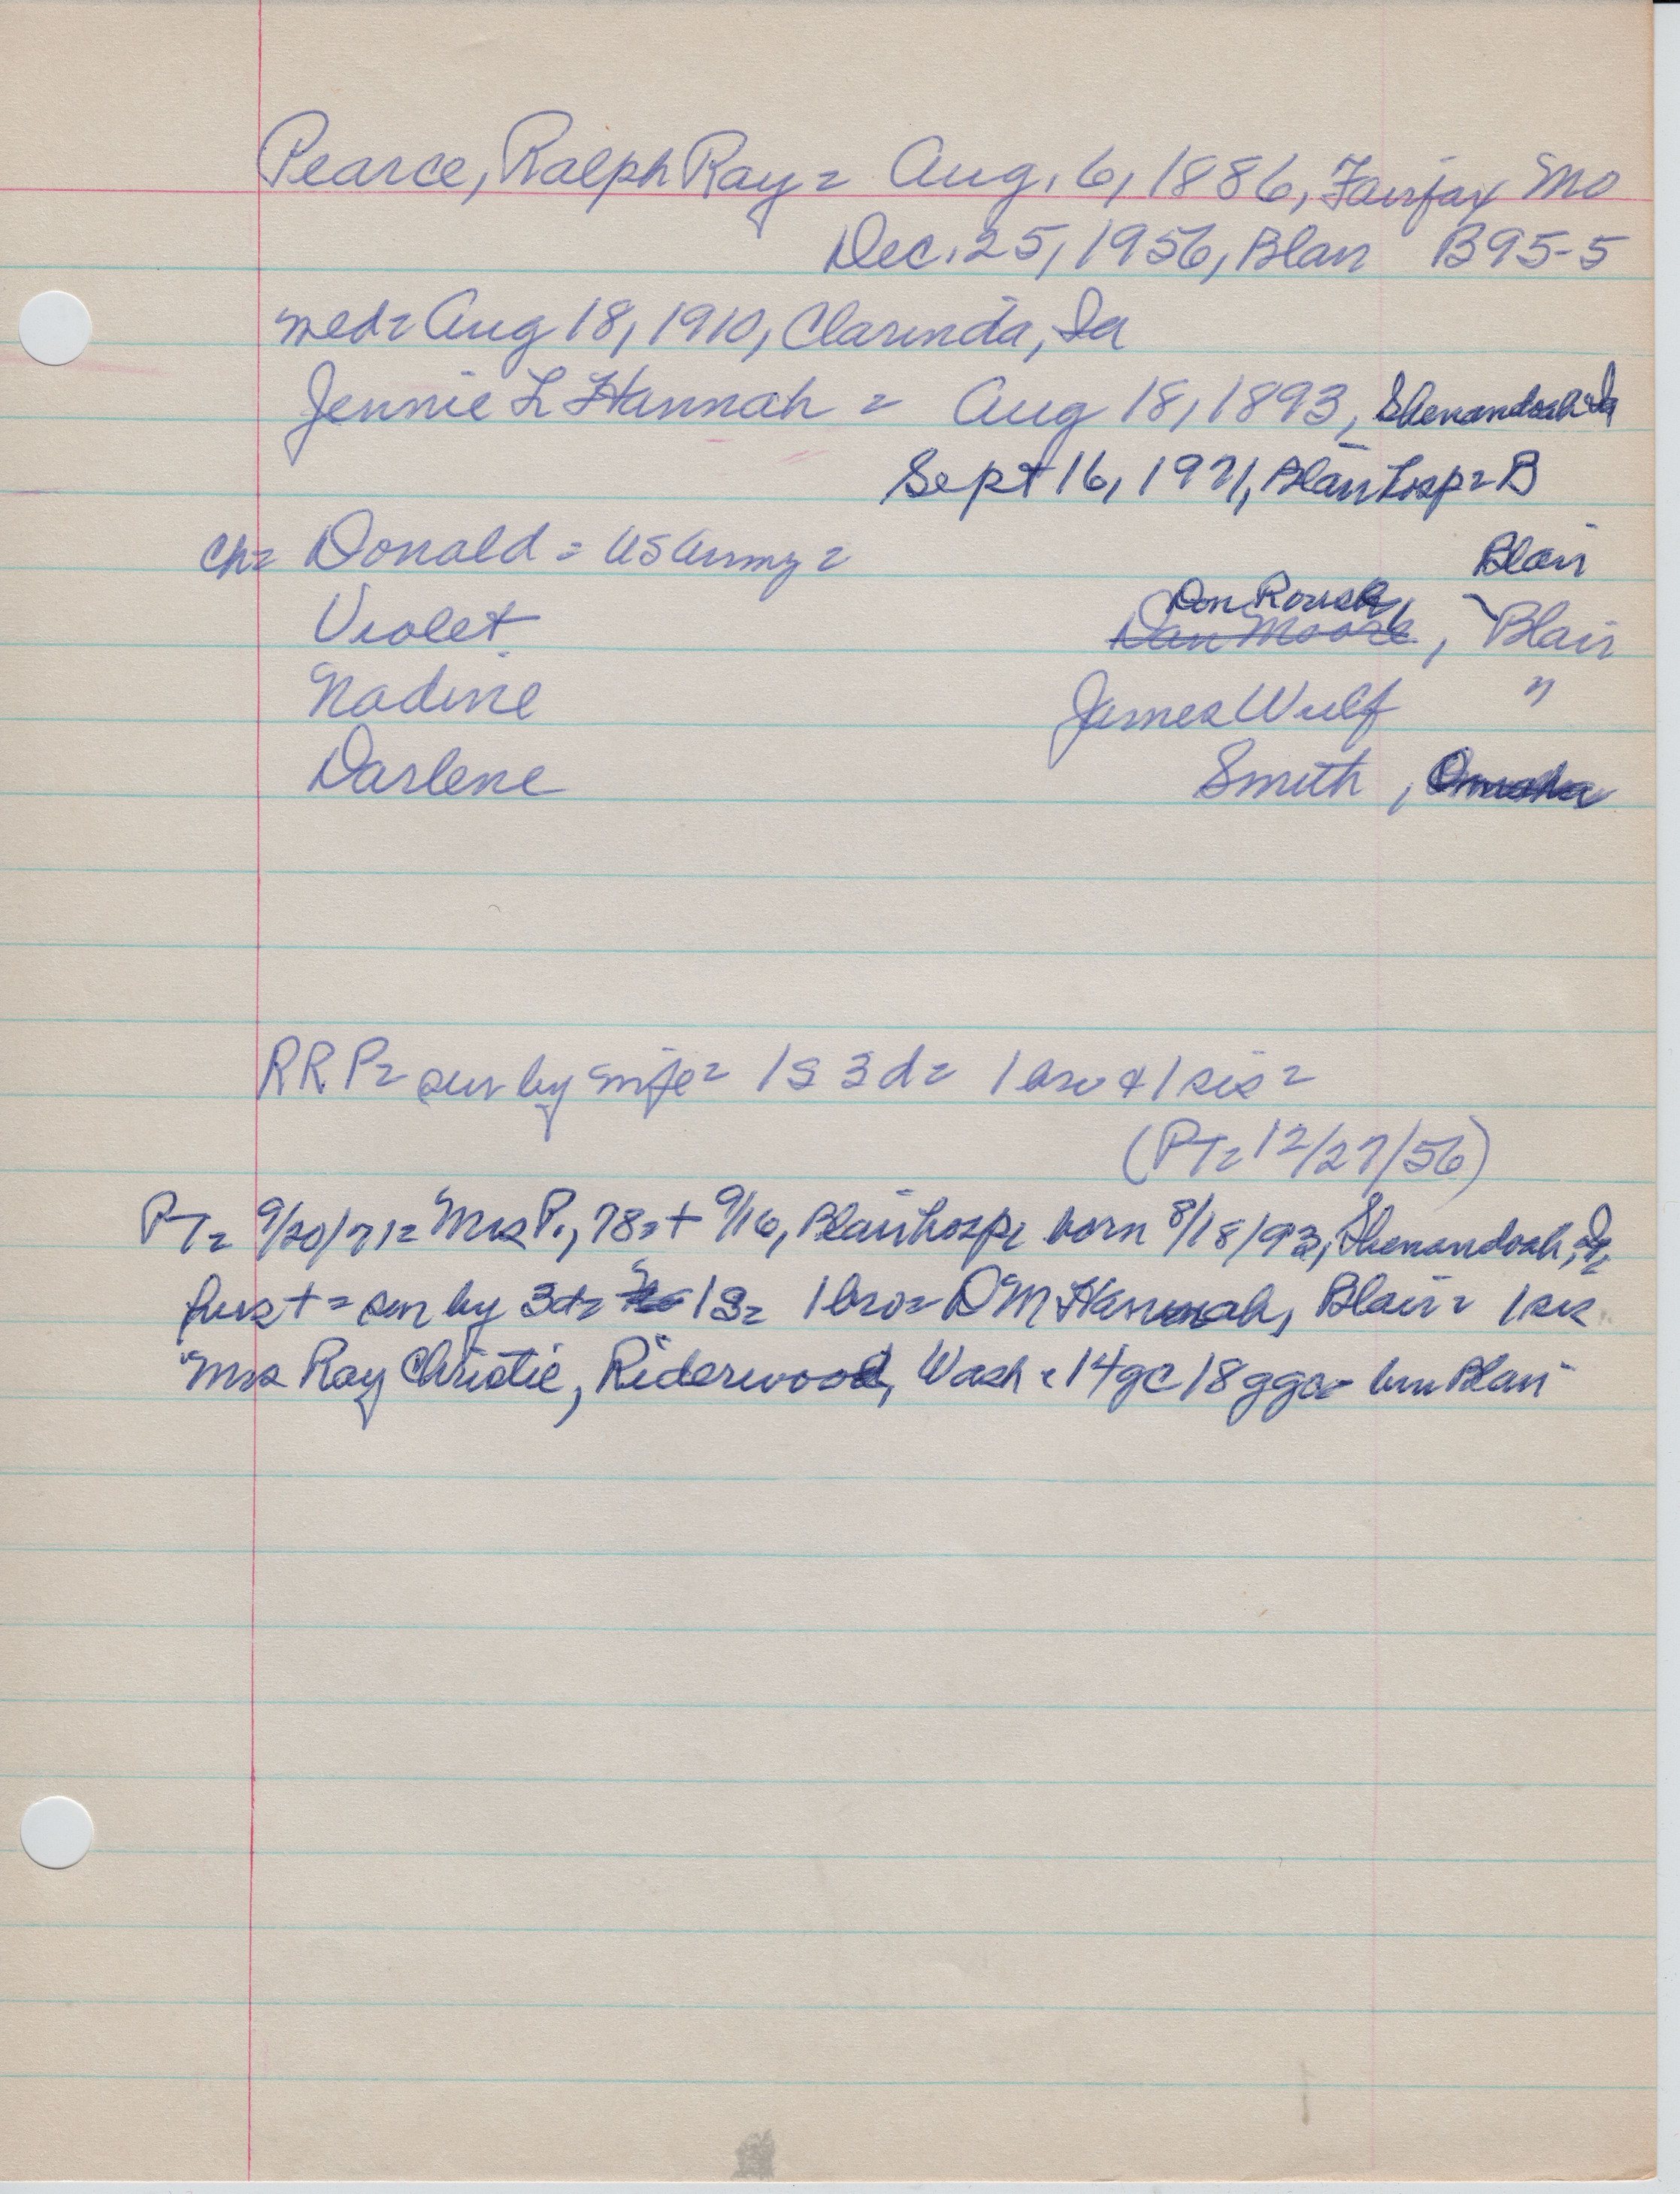 Pearce, Ralph Ray = Aug. 6, 1886, Fairfax Mo
Dec. 25, 1956, Blair B95-5
med = Aug 18, 1910, Clarinda, Ia
Jennie L Hannah = Aug 18, 1893, Shenandoah Ia
Sept 16, 1971, Blair hosp = B
Ch = Donald = US Army = Blair
Don Roush
Violet Dan Moore, Blair
Nadine James Wulf "
Darlene Smith, Omaha
RRP = sur by wife = 1s 3d = 1 bro & 1 sis =
(PT = 12/27/56)
PT = 9/20/71 = Mrs P., 78 = + 9/16, Blair hosp = born 8/18/93, Shenandoah, Ia,
hus + = sur by 3d = 1s = 1 bro = DM Hannah, Blair = 1 sis
Mrs Ray Christie, Riderwood, Wash = 14gc 18ggc = bur Blair